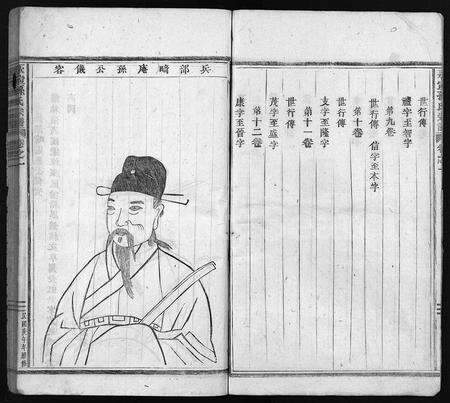 世行傳
禮字至智字
第九卷
世行傳 信字至本字
第十卷
世行傳
支字至隆字
第十一卷
世行傳
茂字至盛字
第十二卷
康字至晉字
兵部疇庵孫公儀容
孫氏宗譜 卷之一